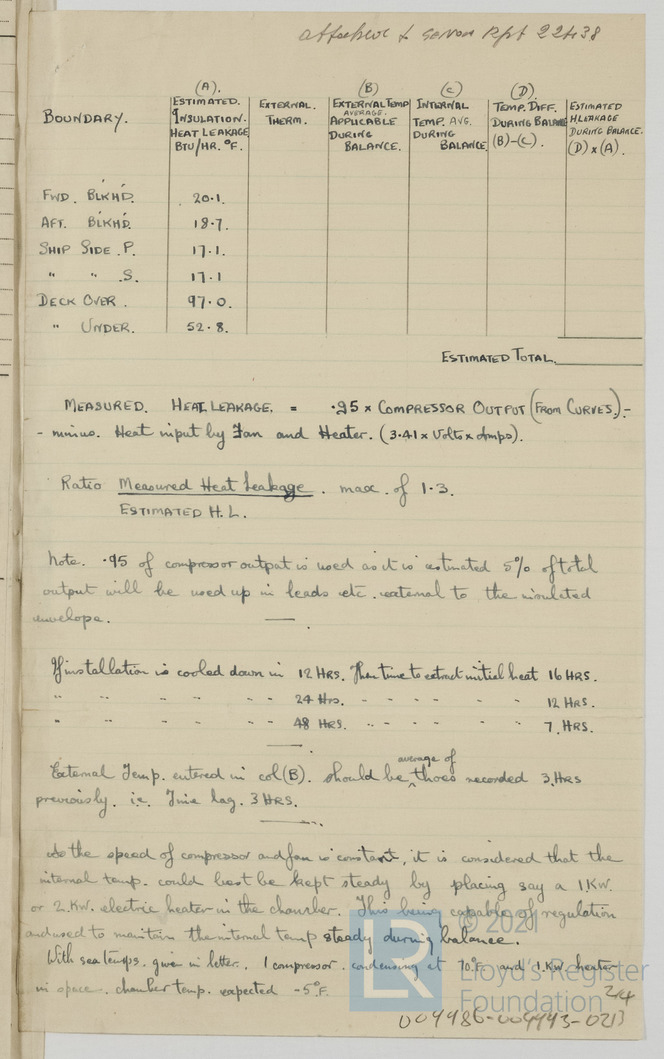 attached to Genoa Rpt 22438
(A). (B) (C) (D).
BOUNDARY. ESTIMATED. INSULATION. HEAT LEAKAGE BTU/HR. °F. EXTERNAL. THERM. EXTERNAL TEMP AVERAGE. APPLICABLE DURING BALANCE. INTERNAL TEMP. AVG. DURING BALANCE. TEMP. DIFF. DURING BALANCE (B)-(C). ESTIMATED H.LEAKAGE DURING BALANCE. (D) x (A).
FWD. BLKHD. 20.1.
AFT. BLKHD. 18.7.
SHIP SIDE .P. 17.1.
" " .S. 17.1
DECK OVER. 97.0.
" UNDER. 52.8.
ESTIMATED TOTAL.
MEASURED. HEAT LEAKAGE. = .95 x COMPRESSOR OUTPUT (FROM CURVES).-
- minus. Heat input by Fan and Heater. (3.41 x Volts x Amps).
Ratio Measured Heat Leakage. max. of 1.3.
ESTIMATED H.L.
Note. .95 of compressor output is used as it is estimated 5% of total
output will be used up in leads etc. external to the insulated
envelope.
If installation is cooled down in 12 HRS. Then time to extract initial heat 16 HRS.
" " " " " 24 Hrs. " " " " " 12 HRS.
" " " " " 48 HRS. " " " " " 7. HRS.
External Temp. entered in col (B). should be average of those recorded 3. HRS
previously. i.e. Time lag. 3 HRS.
As the speed of compressor and fan is constant, it is considered that the
internal temp. could best be kept steady by placing say a 1 KW.
or 2. KW. electric heater in the chamber. This being capable of regulation
and used to maintain the internal temp steady during balance.
With sea temps. give in letter. 1 compressor. condensing at 70°F. and 1. KW. heater
in space. chamber temp. expected -5°F.
© 2021
LR
Lloyd's Register
Foundation
2/4
004486-004493-0213